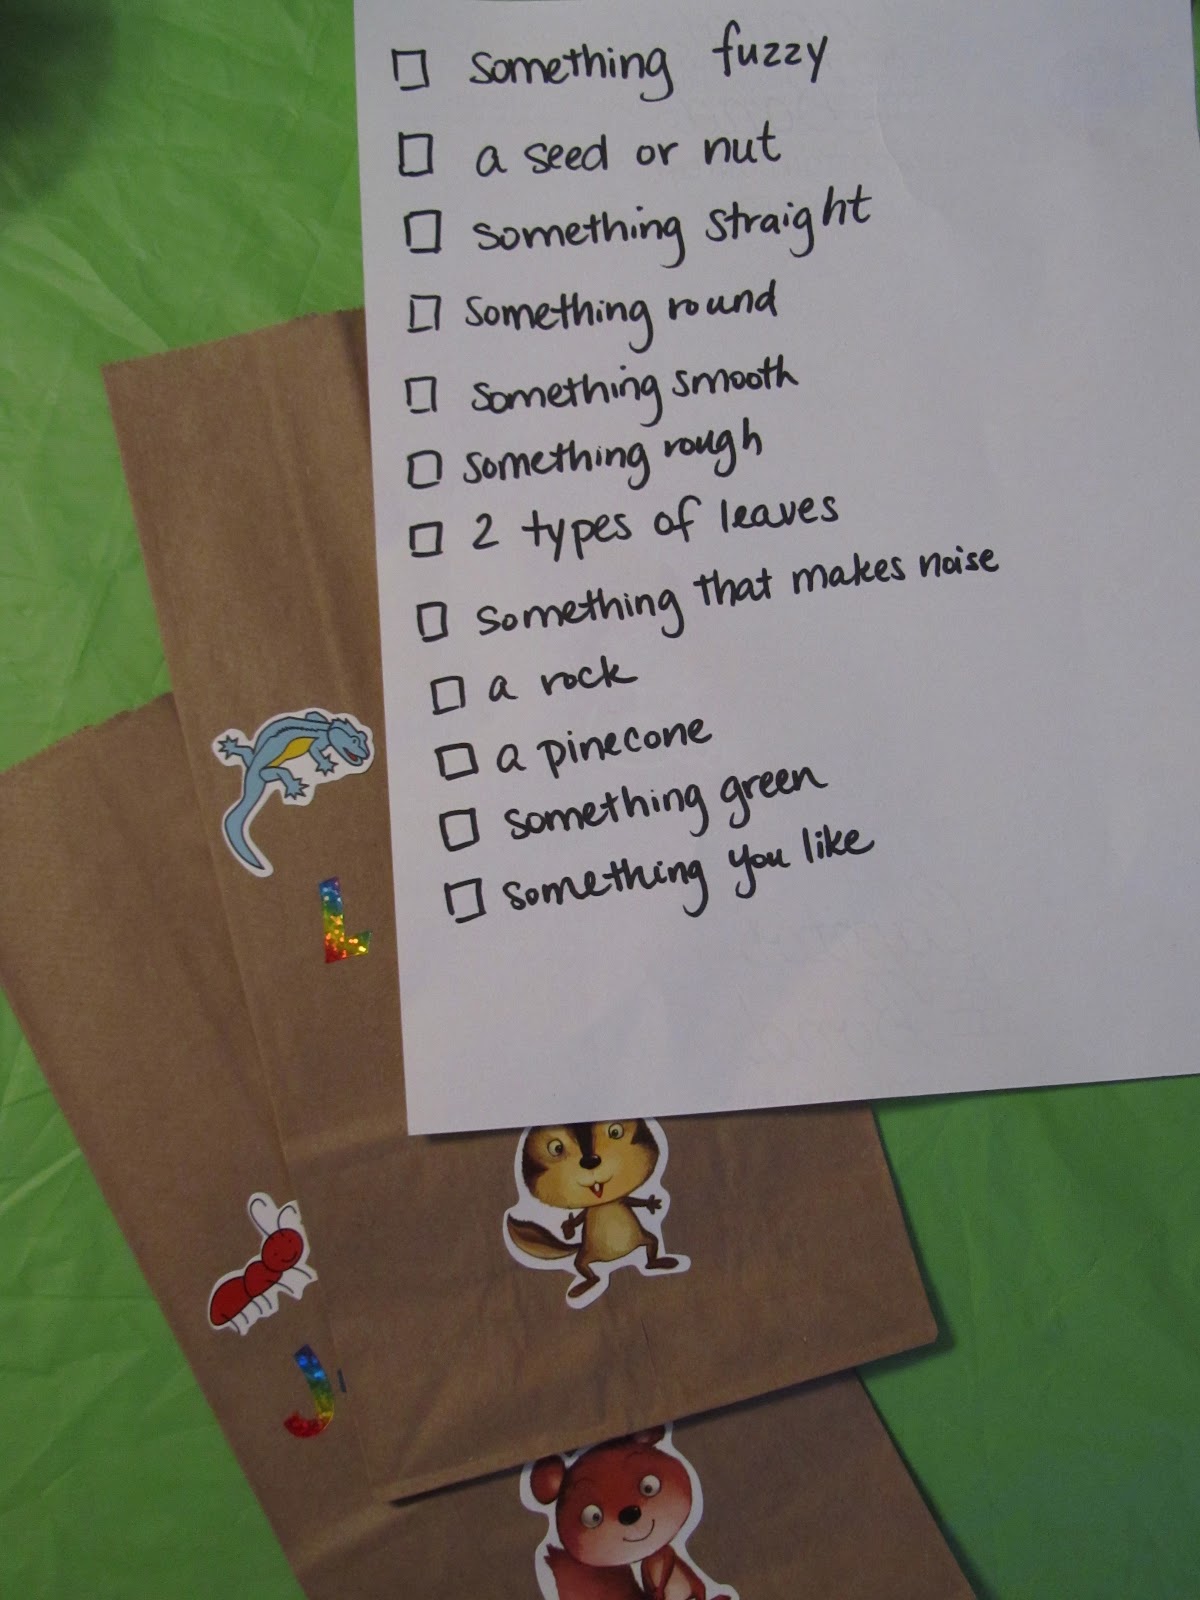 something fuzzy
a seed or nut
something straight
something round
something smooth
something rough
2 types of leaves
something that makes noise
a rock
a pinecone
something green
something you like
L
J